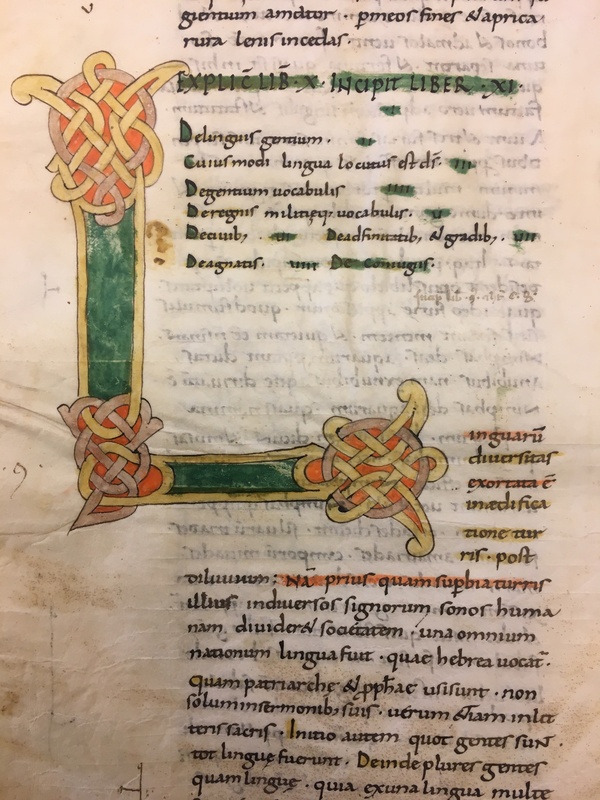 gentium amator · pineos fines & aprica
rura lenis incedas·
EXPLIC̄ LIB̄ · X · INCIPIT LIBER · XI ·
De linguis gentium · II
Cuiusmodi lingua locutus est d̄s · III
De gentium vocabulis IIII
De regnis militięq; vocabulis · V
De civib; · VI De adfinitatib; & gradib; · VII
De agnatis · VIII De coniugiis ·
Linguarū
diversitas
exortata ē
in ædifica
tione tur
ris · post
diluvium : Nā prius quam sup̄bia turris
illius in diversos signorum sonos huma
nam divider& sociętatem · una omnium
nationum lingua fuit · quae hebrea vocat̄ ·
Quam patriarche & p̄ph̄ae usi sunt · non
solum in sermonib; suis · verum &iam in lit
teris sacris · Initio autem quot gentes sunt ·
tot linguę fuerunt · Deinde plures gentes
quam linguę · quia ex una lingua multe